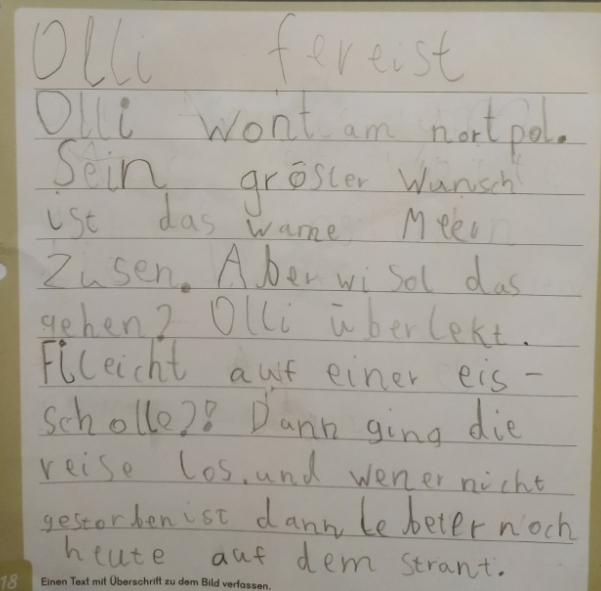 Olli fereist
Olli wont am nortpol.
Sein gröster Wunsch
ist das warme Meer
zusen. Aber wi sol das
gehen? Olli überlekt.
Fileicht auf einer eis-
scholle?! Dann ging die
reise los. und wener nicht
gestorben ist dann le beter noch
heute auf dem strant.
18 Einen Text mit Überschrift zu dem Bild verfassen.